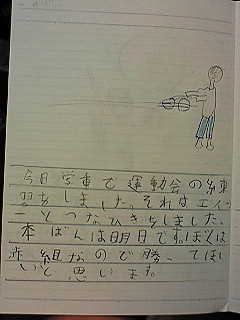 今日 学で 運動会の練
習をしました。それはエイサ
ーとつなひきをしました。
本ばんは明日です。ぼくは
赤組なので勝ってほし
いと思います。